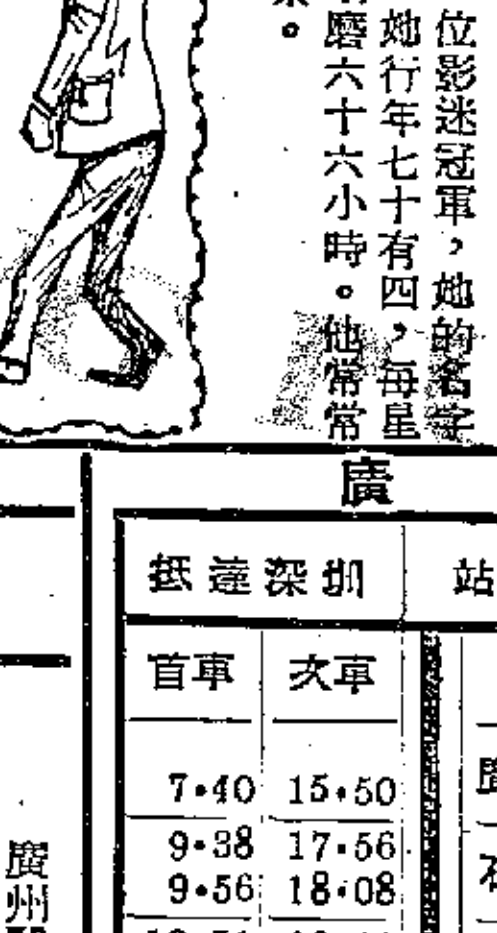 位影迷冠軍，她的名字
她行年七十有四，每星
磨六十六小時。他常常
。
廣
抵達深圳 站
首車 次車
7•40 15•50
9•38 17•56
9•56 18•08
廣州